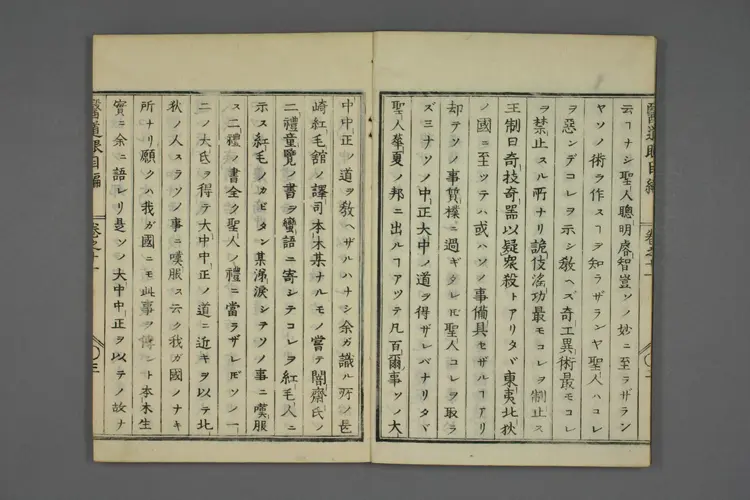 云ヿナシ聖人聰明睿智豈ソノ妙ニ至ラザラン
ヤソノ術ヲ作スヿヲ知ラザランヤ聖人ハコレ
ヲ惡ンデコレヲ示シ敎ヘズ奇工異術最モコレ
ヲ禁止スル所ナリ詭伎淫功最モコレヲ制止ス
王制曰奇技奇器以疑衆殺トアリタヾ東夷北狄
ノ國ニ至ツテハ或ハソノ事備具セザルヿアリ
却テソノ事質樸ニ過ギタレ𪜈聖人コレヲ取ラ
ズミナソノ中正大中ノ道ヲ得ザレバナリタヾ
聖人華夏ノ邦ニ出ルヿアツテ凡百爾事ソノ大
中中正ノ道ヲ敎ヘザルハナシ余ガ識ル所ノ長
崎紅毛舘ノ譯司本木某ナルモノ嘗テ闇齋氏ノ
二禮童覽ノ書ヲ蠻語ニ寄シテコレヲ紅毛人ニ
示ス紅毛ノカピタン某涕淚シテソノ事ニ嘆服
ス二禮ノ書全ク聖人ノ禮ニ當ラザレ𪜈ソノ一
二ノ大氐ヲ得テ大中中正ノ道ニ近キヲ以テ北
狄ノ人スラソノ事ニ嘆服ス云ク我ガ國ノナキ
所ナリ願クハ我ガ國ニモ此事ヲ傳ント本木生
實ニ余ニ語レリ是ソノ大中中正ヲ以テノ故ナ
醫道眼目編 卷之十一 〇三